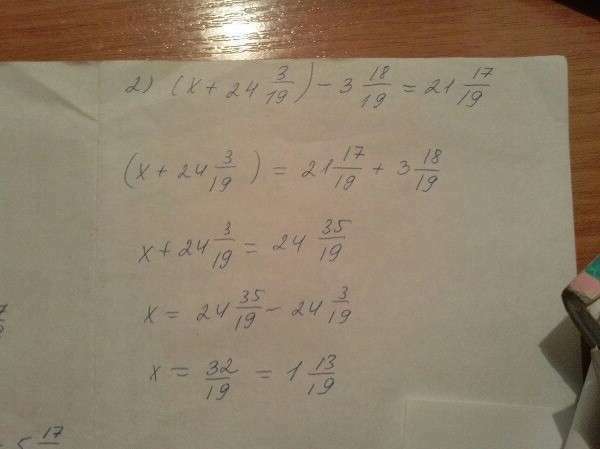 2) (x + 24 3/19) - 3 18/19 = 21 17/19
(x + 24 3/19) = 21 17/19 + 3 18/19
x + 24 3/19 = 24 35/19
x = 24 35/19 - 24 3/19
x = 32/19 = 1 13/19
5 17